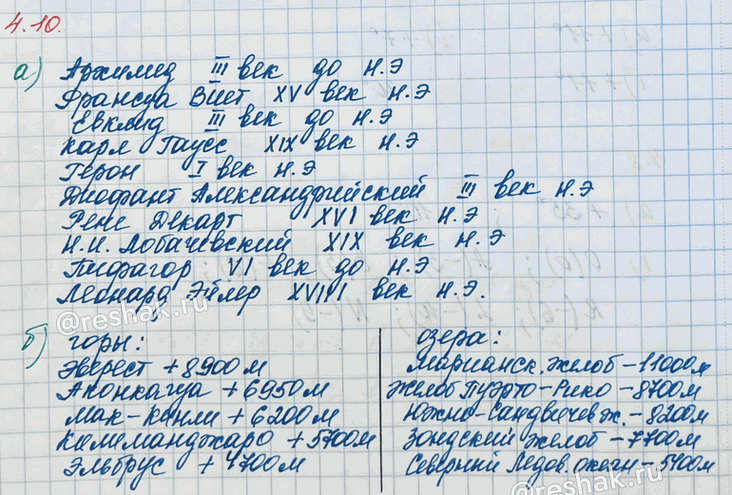 4.10.
а) Архимед III век до н.э
Франсуа Виет XV век н.э
Евклид III век до н.э
Карл Гаусс XIX век н.э
Герон I век н.э
Диофант Александрийский III век н.э
Рене Декарт XVI век н.э
Н.И. Лобачевский XIX век н.э
Пифагор VI век до н.э
Леонард Эйлер XVIII век н.э.
б) горы:
Эверест + 8900 м
Аконкагуа + 6950 м
Мак-Кинли + 6200 м
Килиманджаро + 5700 м
Эльбрус + 4700 м
озера:
Марианск. желоб - 11000 м
Желоб Пуэрто-Рико - 8700 м
Южно-Сандвичев ж. - 8200 м
Зондский желоб - 7700 м
Северный Ледов. океан - 5400 м
@reshak.ru
@reshak.ru
@reshak.ru
@reshak.ru